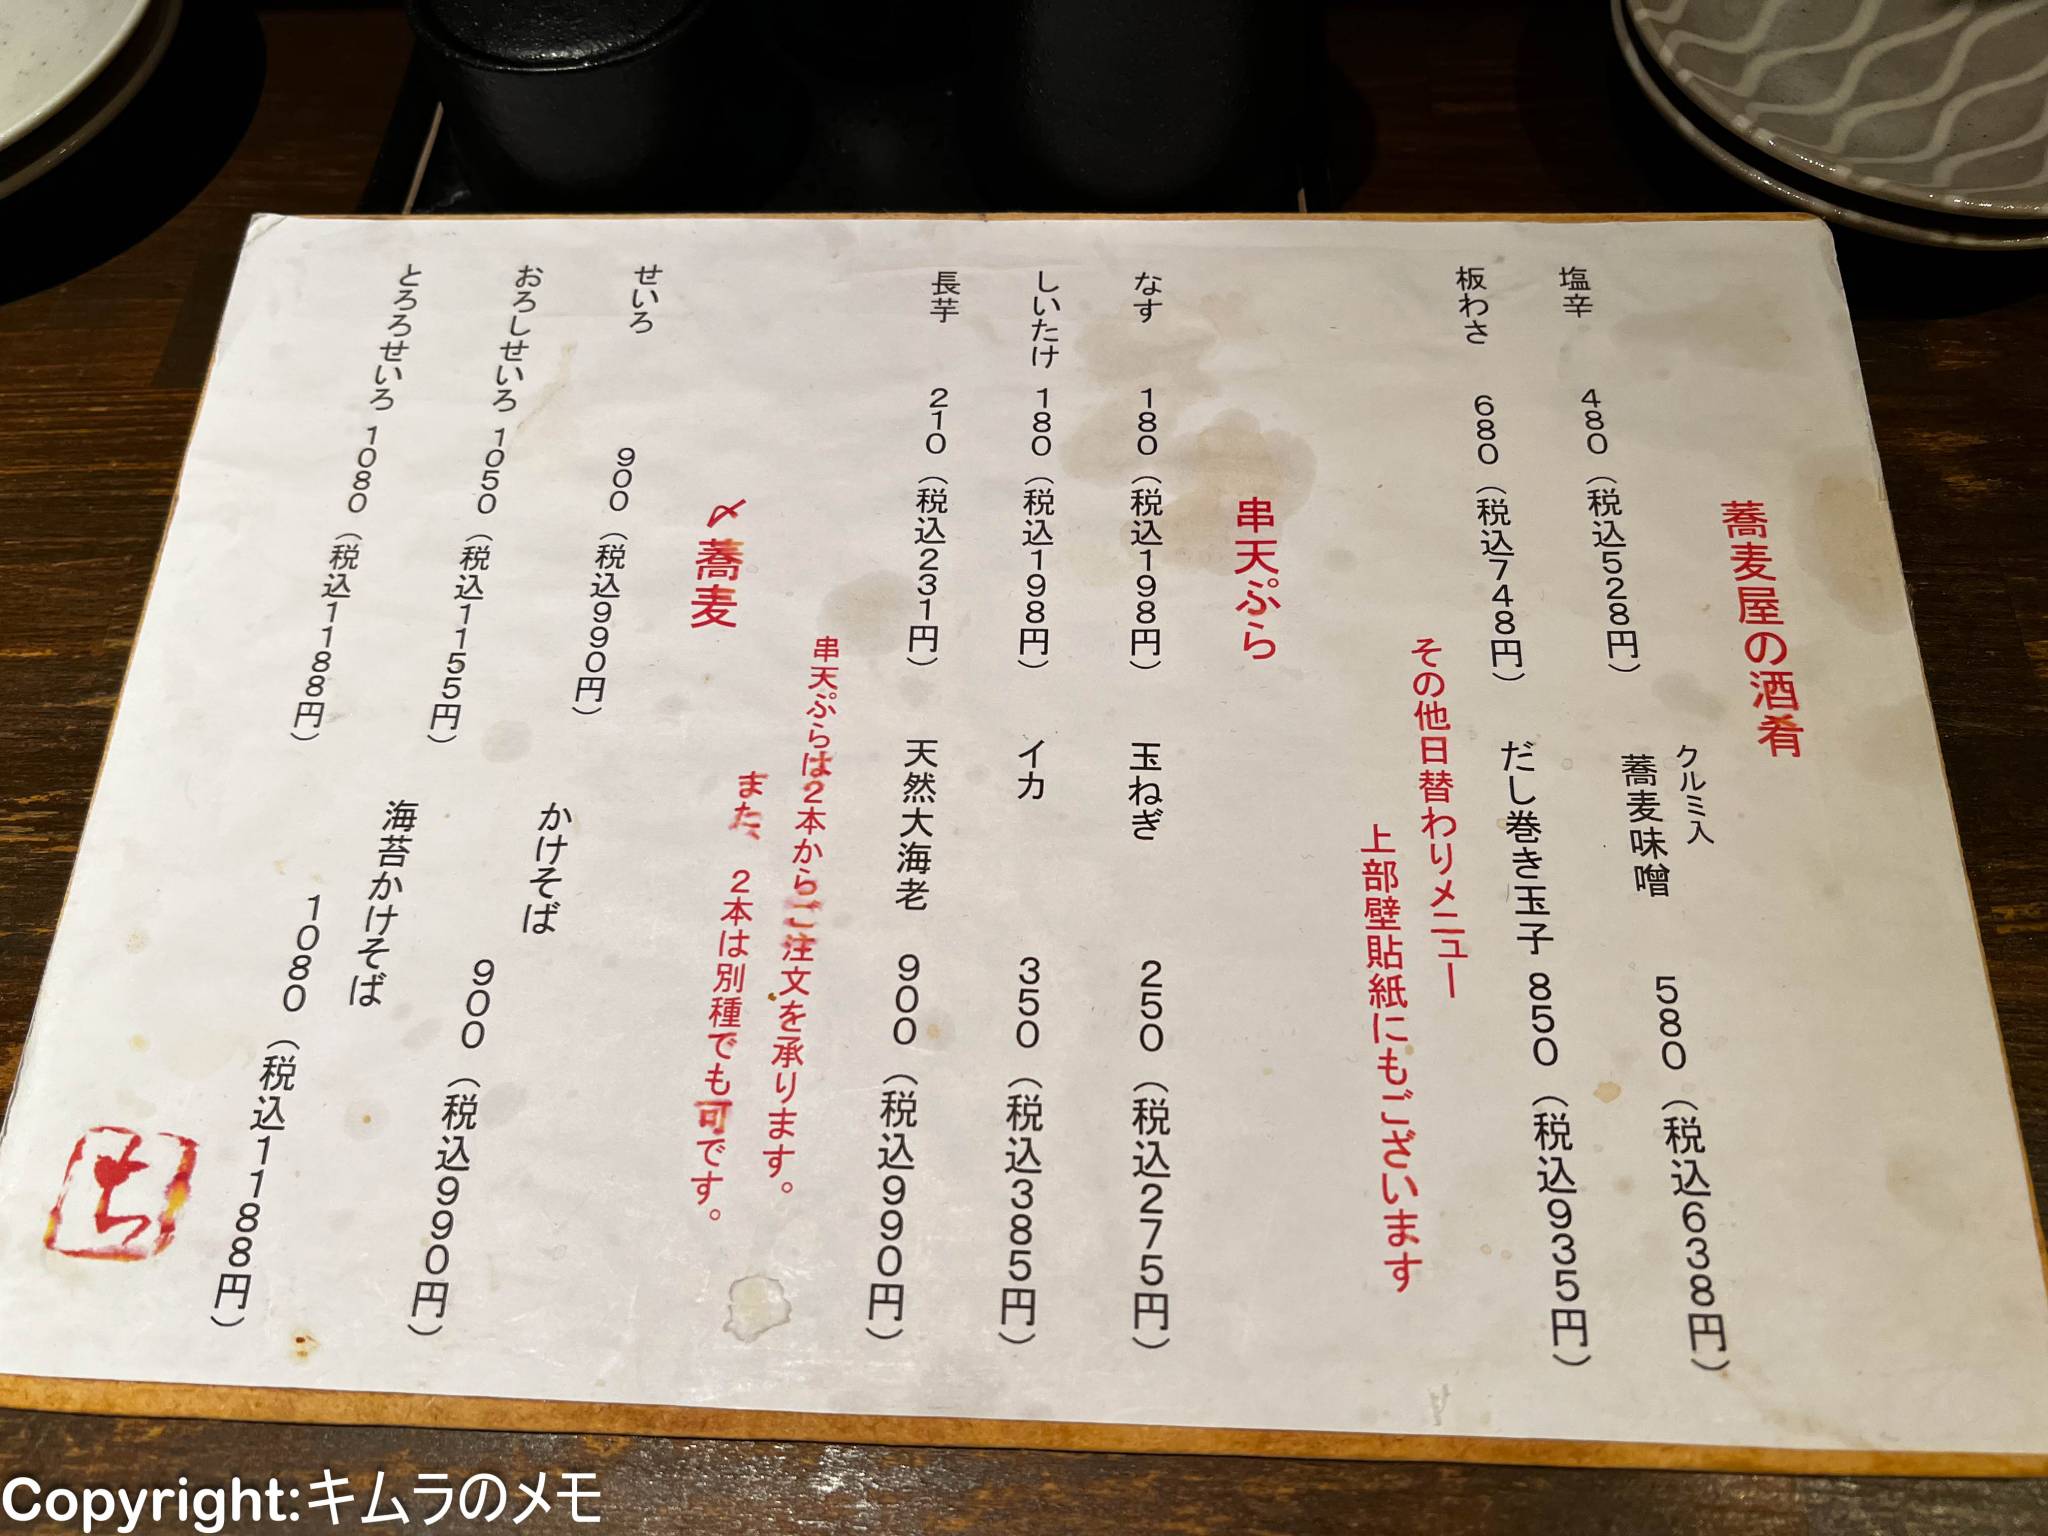 蕎麦屋の酒肴
塩辛 480（税込528円）
クルミ入
蕎麦味噌 580（税込638円）
板わさ 680（税込748円）
だし巻き玉子 850（税込935円）
その他日替わりメニュー
上部壁貼紙にもございます
串天ぷら
なす 180（税込198円）
玉ねぎ 250（税込275円）
しいたけ 180（税込198円）
イカ 350（税込385円）
長芋 210（税込231円）
天然大海老 900（税込990円）
串天ぷらは2本からご注文を承ります。
また、2本は別種でも可です。
〆蕎麦
せいろ 900（税込990円）
かけそば 900（税込990円）
おろしせいろ 1050（税込1155円）
海苔かけそば 1080（税込1188円）
とろろせいろ 1080（税込1188円）
Copyright:キムラのメモ